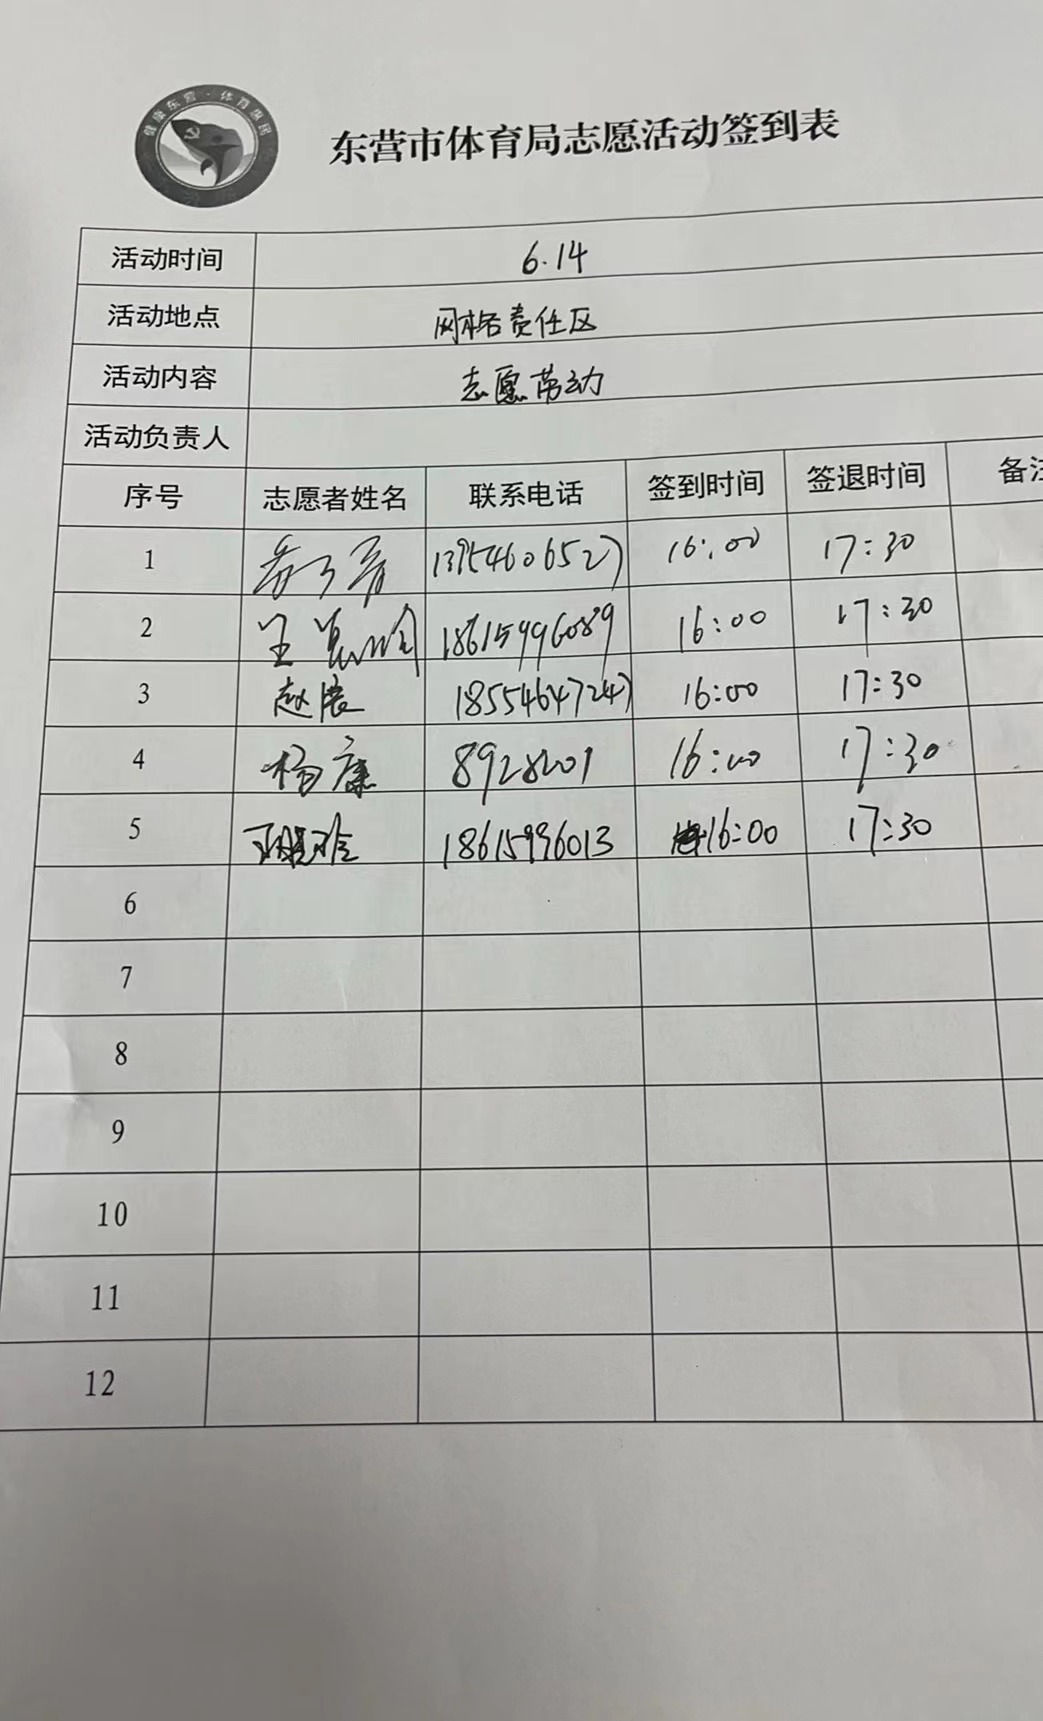 健康东营·体育惠民
东营市体育局志愿活动签到表
活动时间 6.14
活动地点 网格责任区
活动内容 志愿劳动
活动负责人
序号 志愿者姓名 联系电话 签到时间 签退时间 备注
1 13954606527 16:00 17:30
2 王 18615996089 16:00 17:30
3 赵展 18554647247 16:00 17:30
4 杨康 8928201 16:00 17:30
5 18615996013 16:00 17:30
6
7
8
9
10
11
12